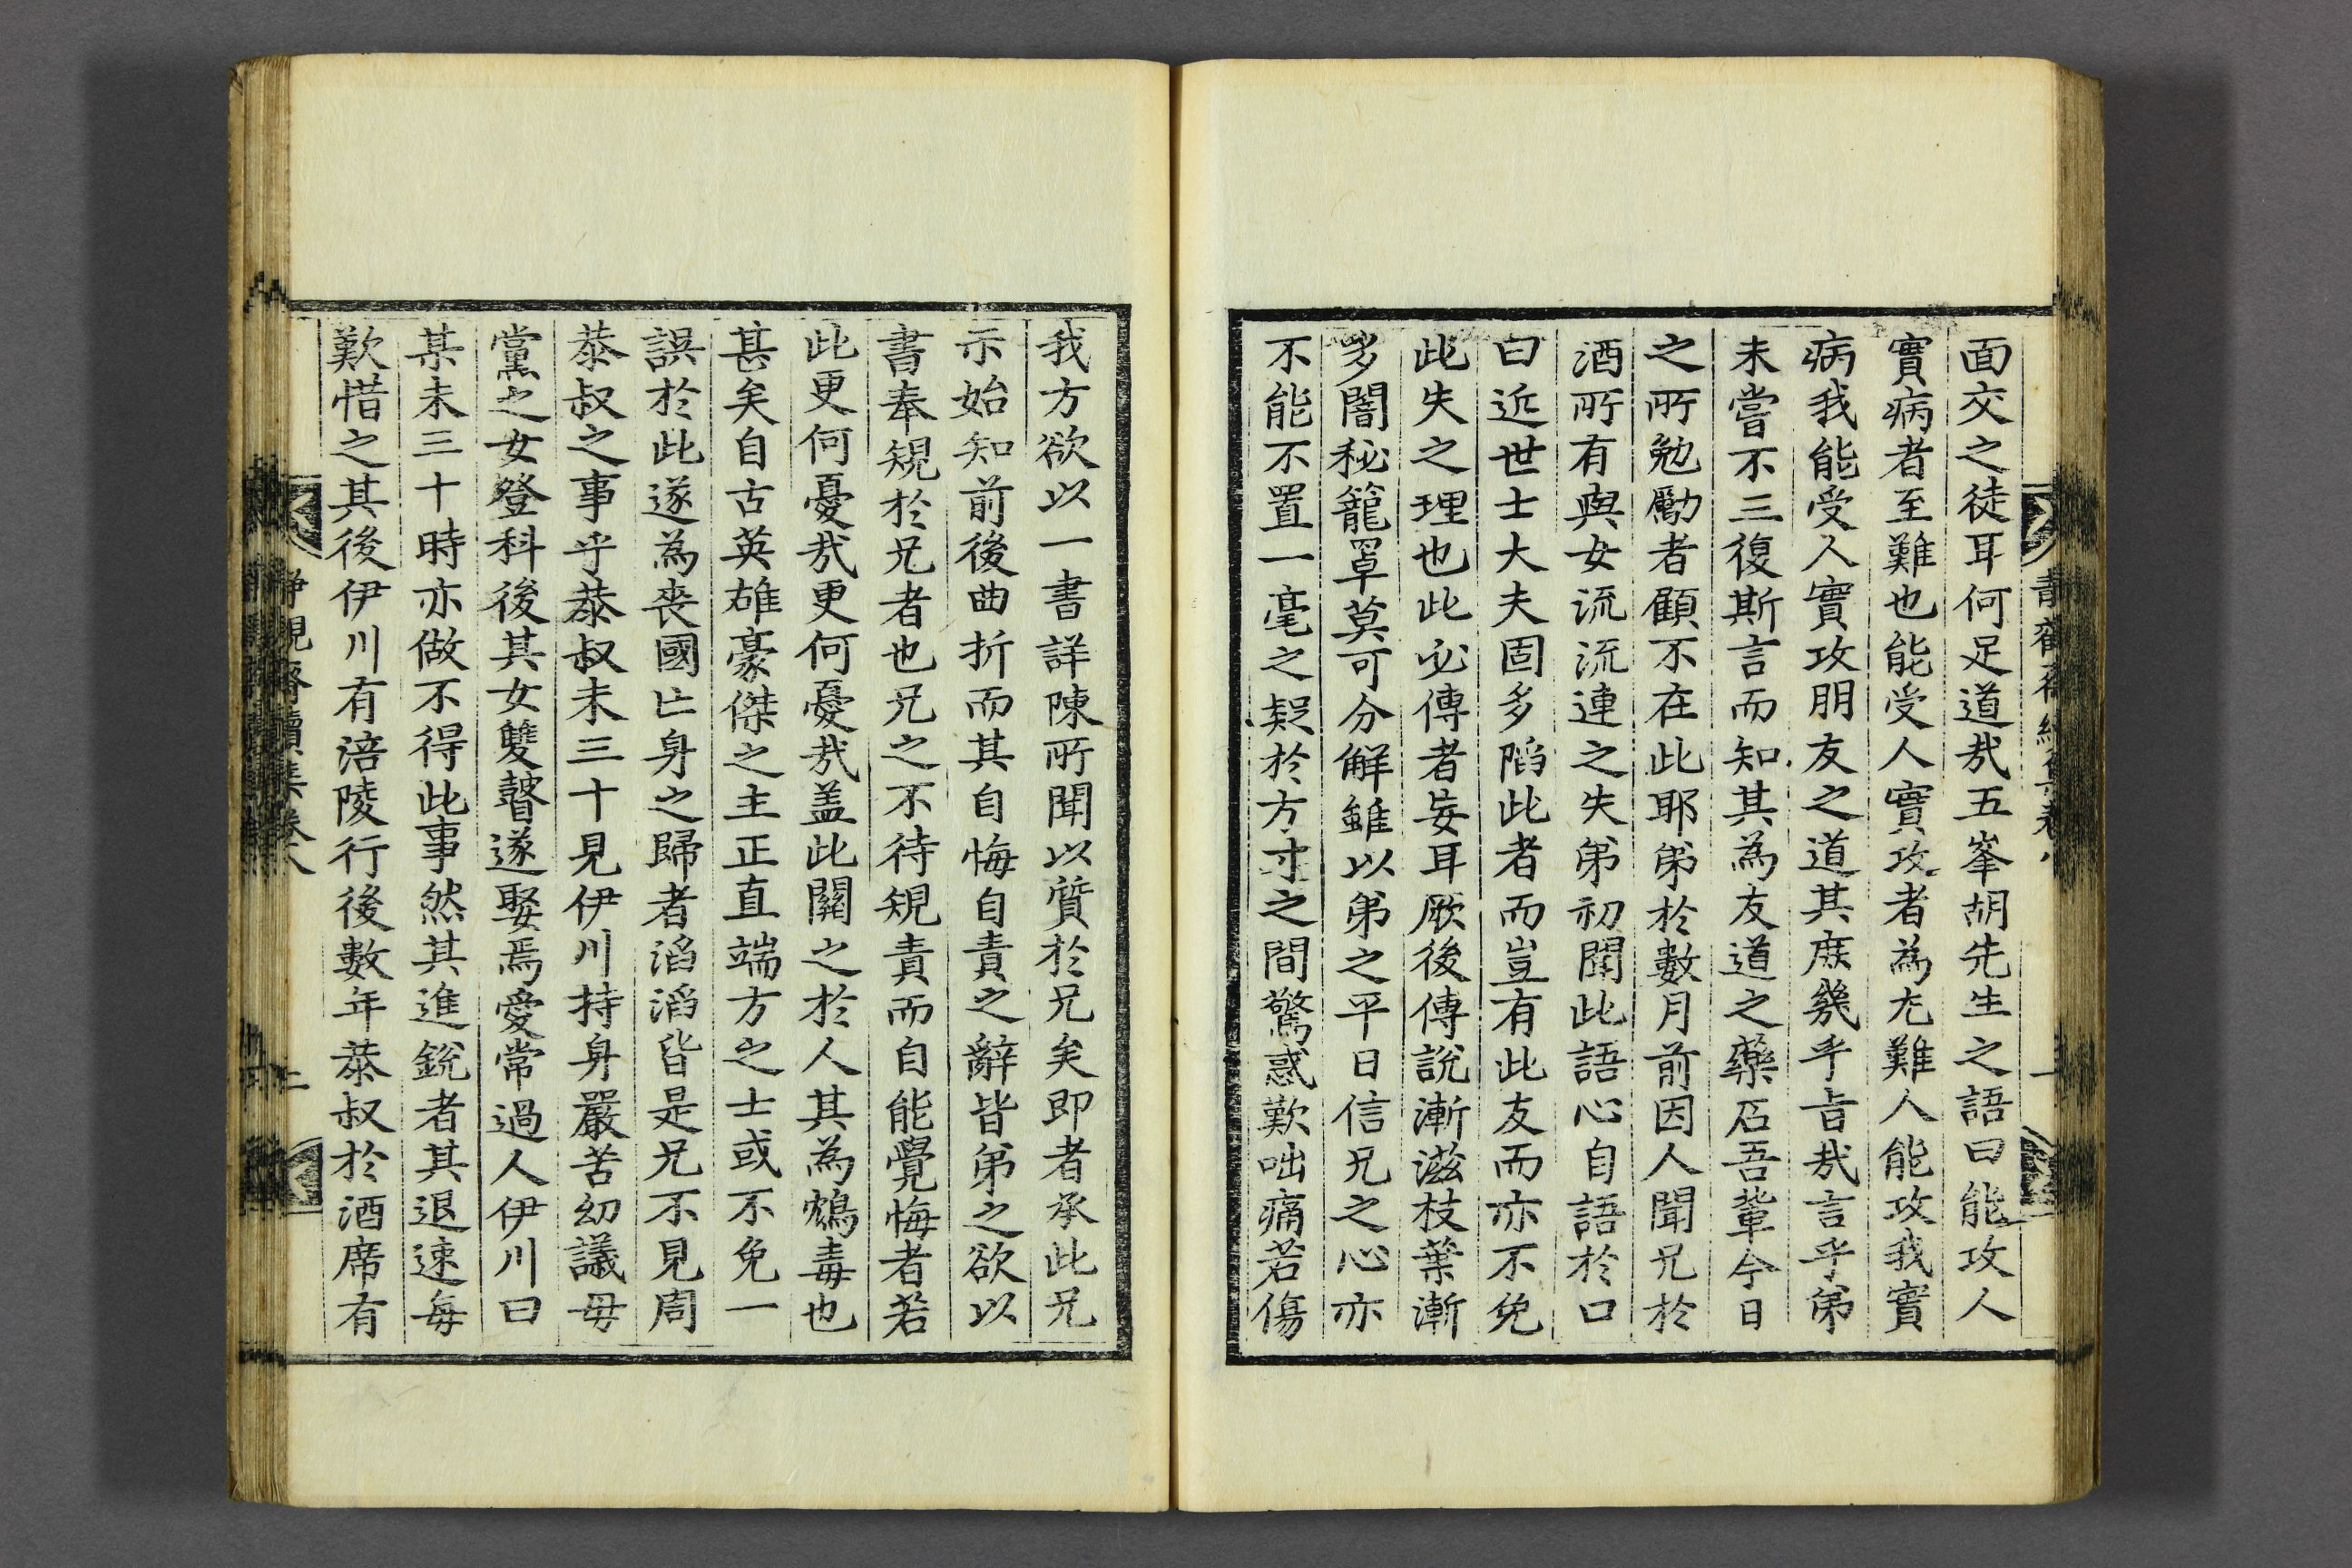 面交之徒耳何足道哉五峯胡先生之語曰能攻人
實病者至難也能受人實攻者為尤難人能攻我實
病我能受人實攻朋友之道其庶幾乎旨哉言乎弟
未嘗不三復斯言而知其為友道之藥石吾輩今日
之所勉勵者顧不在此耶弟於數月前因人聞兄於
酒所有與女流流連之失弟初聞此語心自語於口
曰近世士大夫固多陷此者而豈有此友而亦不免
此失之理也此必傳者妄耳厥後傳說漸滋枝葉漸
多闇秘籠罩莫可分解雖以弟之平日信兄之心亦
不能不置一毫之疑於方寸之間驚惑歎咄痛若傷
我方欲以一書詳陳所聞以質於兄矣即者承此兄
示始知前後曲折而其自悔自責之辭皆弟之欲以
書奉規於兄者也兄之不待規責而自能覺悔者若
此更何憂哉更何憂哉盖此關之於人其為鴆毒也
甚矣自古英雄豪傑之主正直端方之士或不免一
誤於此遂為喪國亡身之歸者滔滔皆是兄不見周
恭叔之事乎恭叔未三十見伊川持身嚴苦幼議母
黨之女登科後其女雙瞽遂娶焉愛常過人伊川曰
某未三十時亦做不得此事然其進銳者其退速每
歎惜之其後伊川有涪陵行後數年恭叔於酒席有
靜觀齋續集卷八
二